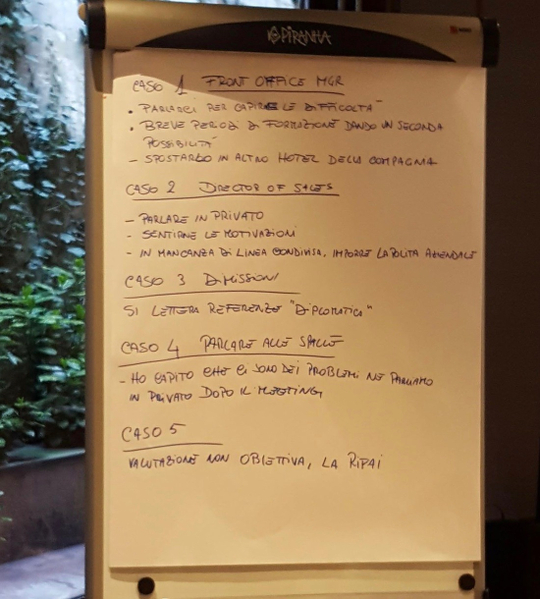 PIRANHA
CASO 1 FRONT OFFICE MGR
• PARLARCI PER CAPIRE LE DIFFICOLTA'
• BREVE PERIOD DI FORMAZIONE DANDO UN SECONDA
POSSIBILITA'
- SPOSTARLO IN ALTRO HOTEL DELLA COMPAGNIA
CASO 2 DIRECTOR OF SALES
- PARLARE IN PRIVATO
- SENTIRNE LE MOTIVAZIONI
- IN MANCANZA DI LINEA CONDIVISA, IMPORRE LA POLITA AZIENDALE
CASO 3 DIMISSIONI
SI LETTERA REFERENZE "DIPLOMATICA"
CASO 4 PARLARE ALLE SPALLE
- HO CAPITO CHE CI SONO DEI PROBLEMI NE PARLIAMO
IN PRIVATO DOPO IL MEETING
CASO 5
VALUTAZIONE NON OBIETTIVA, LA RIFAI